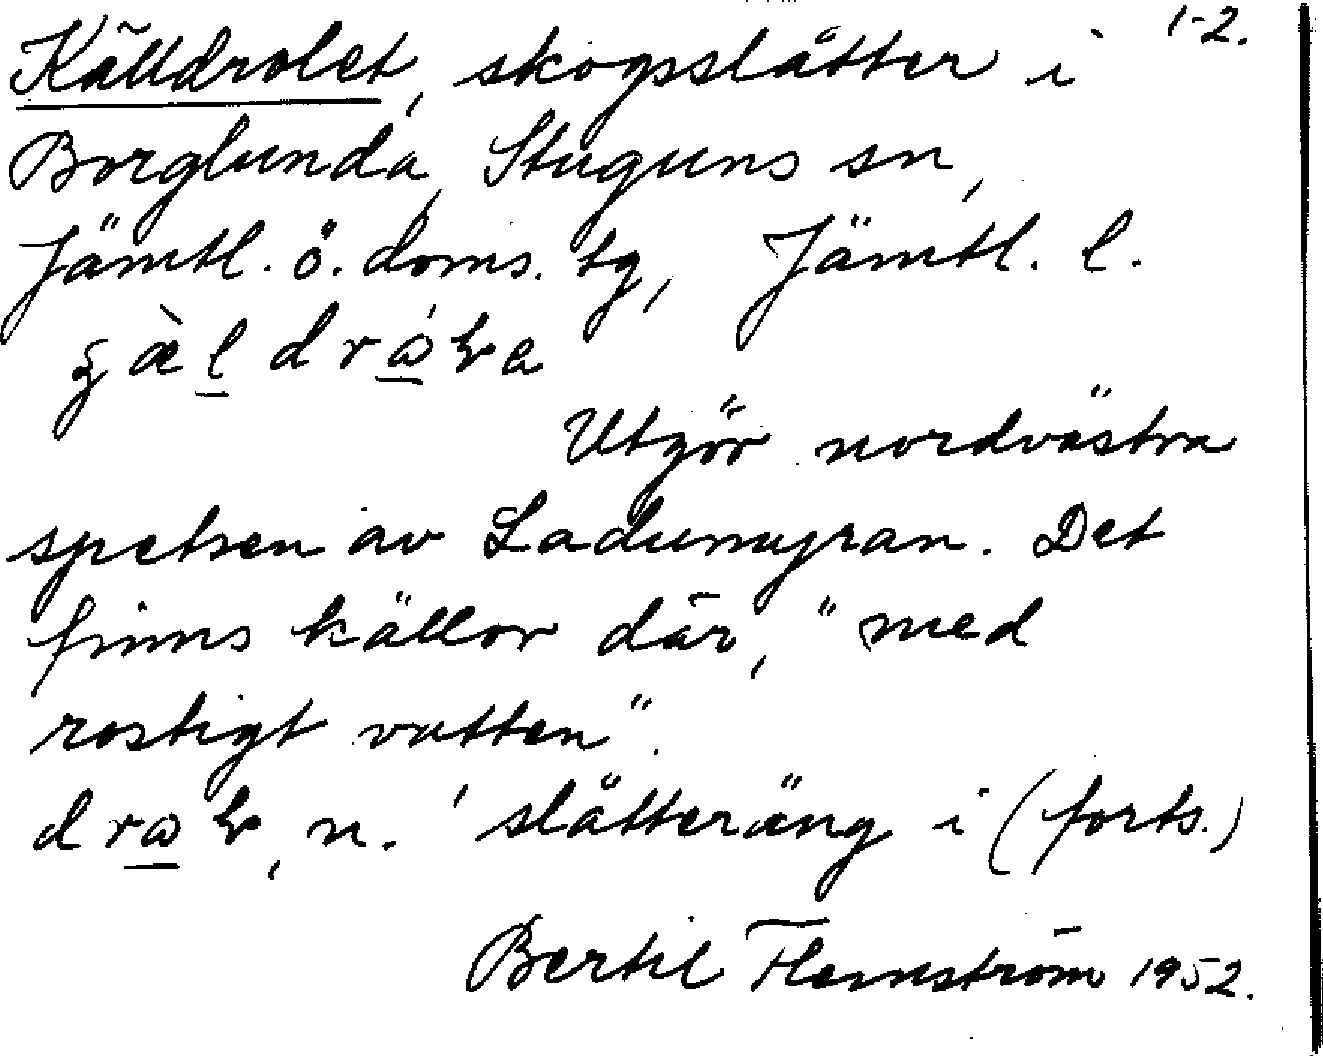 1-2.
Källdrolet, skogsslåtter i
Borglunda, Stuguns sn,
Jämtl. ö. doms. tg, Jämtl. l.
Utgör nordvästra
spetsen av Ladumyran. Det
finns källor där, "med
rostigt vatten".
n. 'slåtteräng i (forts.)
Bertil Flemström 1952.